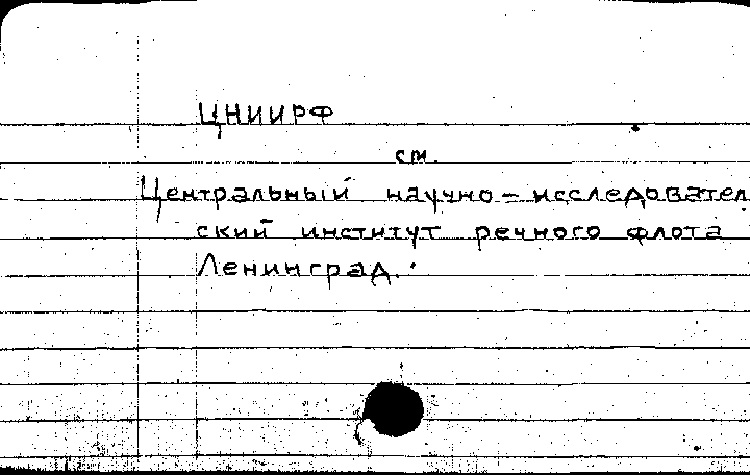 ЦНИИРФ
см.
Центральный научно-исследовател
ский институт речного флота
Ленинград.